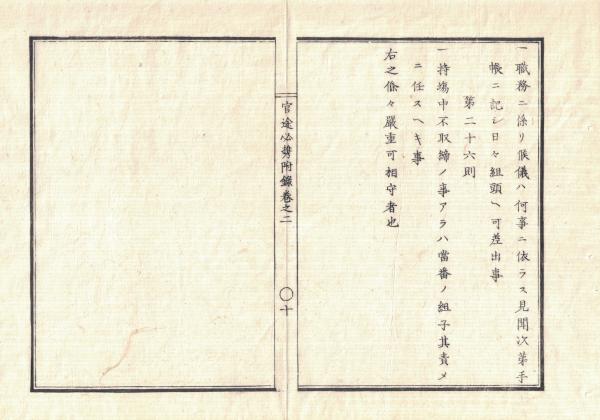 一職務ニ係リ候儀ハ何事ニ依ラス見聞次第手
帳ニ記シ日々組頭ヘ可差出事
第二十六則
一持塲中不取締ノ事アラハ當番ノ組子其責メ
ニ任スヘキ事
右之條々嚴重可相守者也
官途必携附錄卷之二
〇十